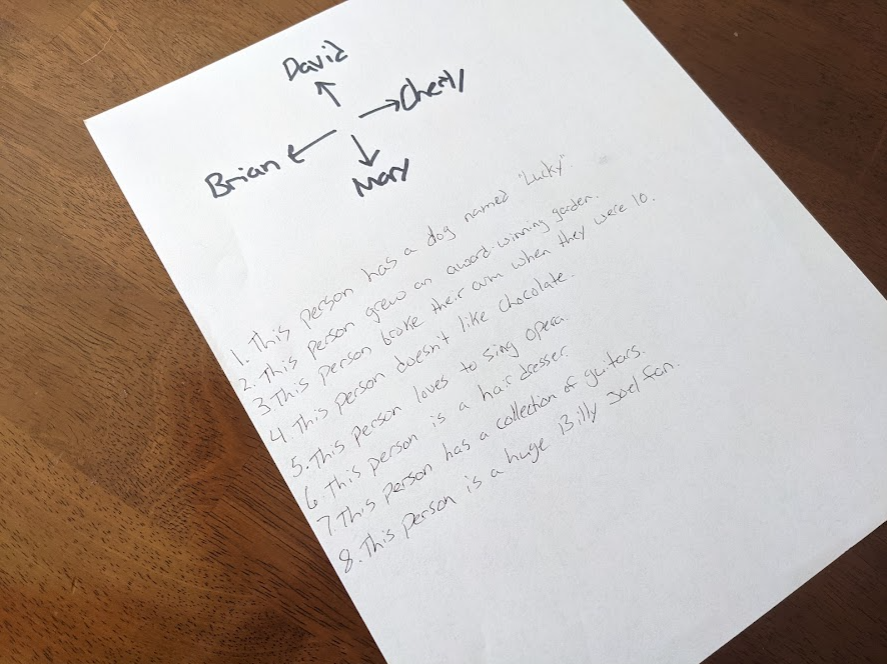 David
Cheryl
Brian
Mary
1. This person has a dog named "Lucky".
2. This person grew an award-winning garden.
3. This person broke their arm when they were 10.
4. This person doesn't like chocolate.
5. This person loves to sing opera.
6. This person is a hair dresser.
7. This person has a collection of guitars.
8. This person is a huge Billy Joel fan.